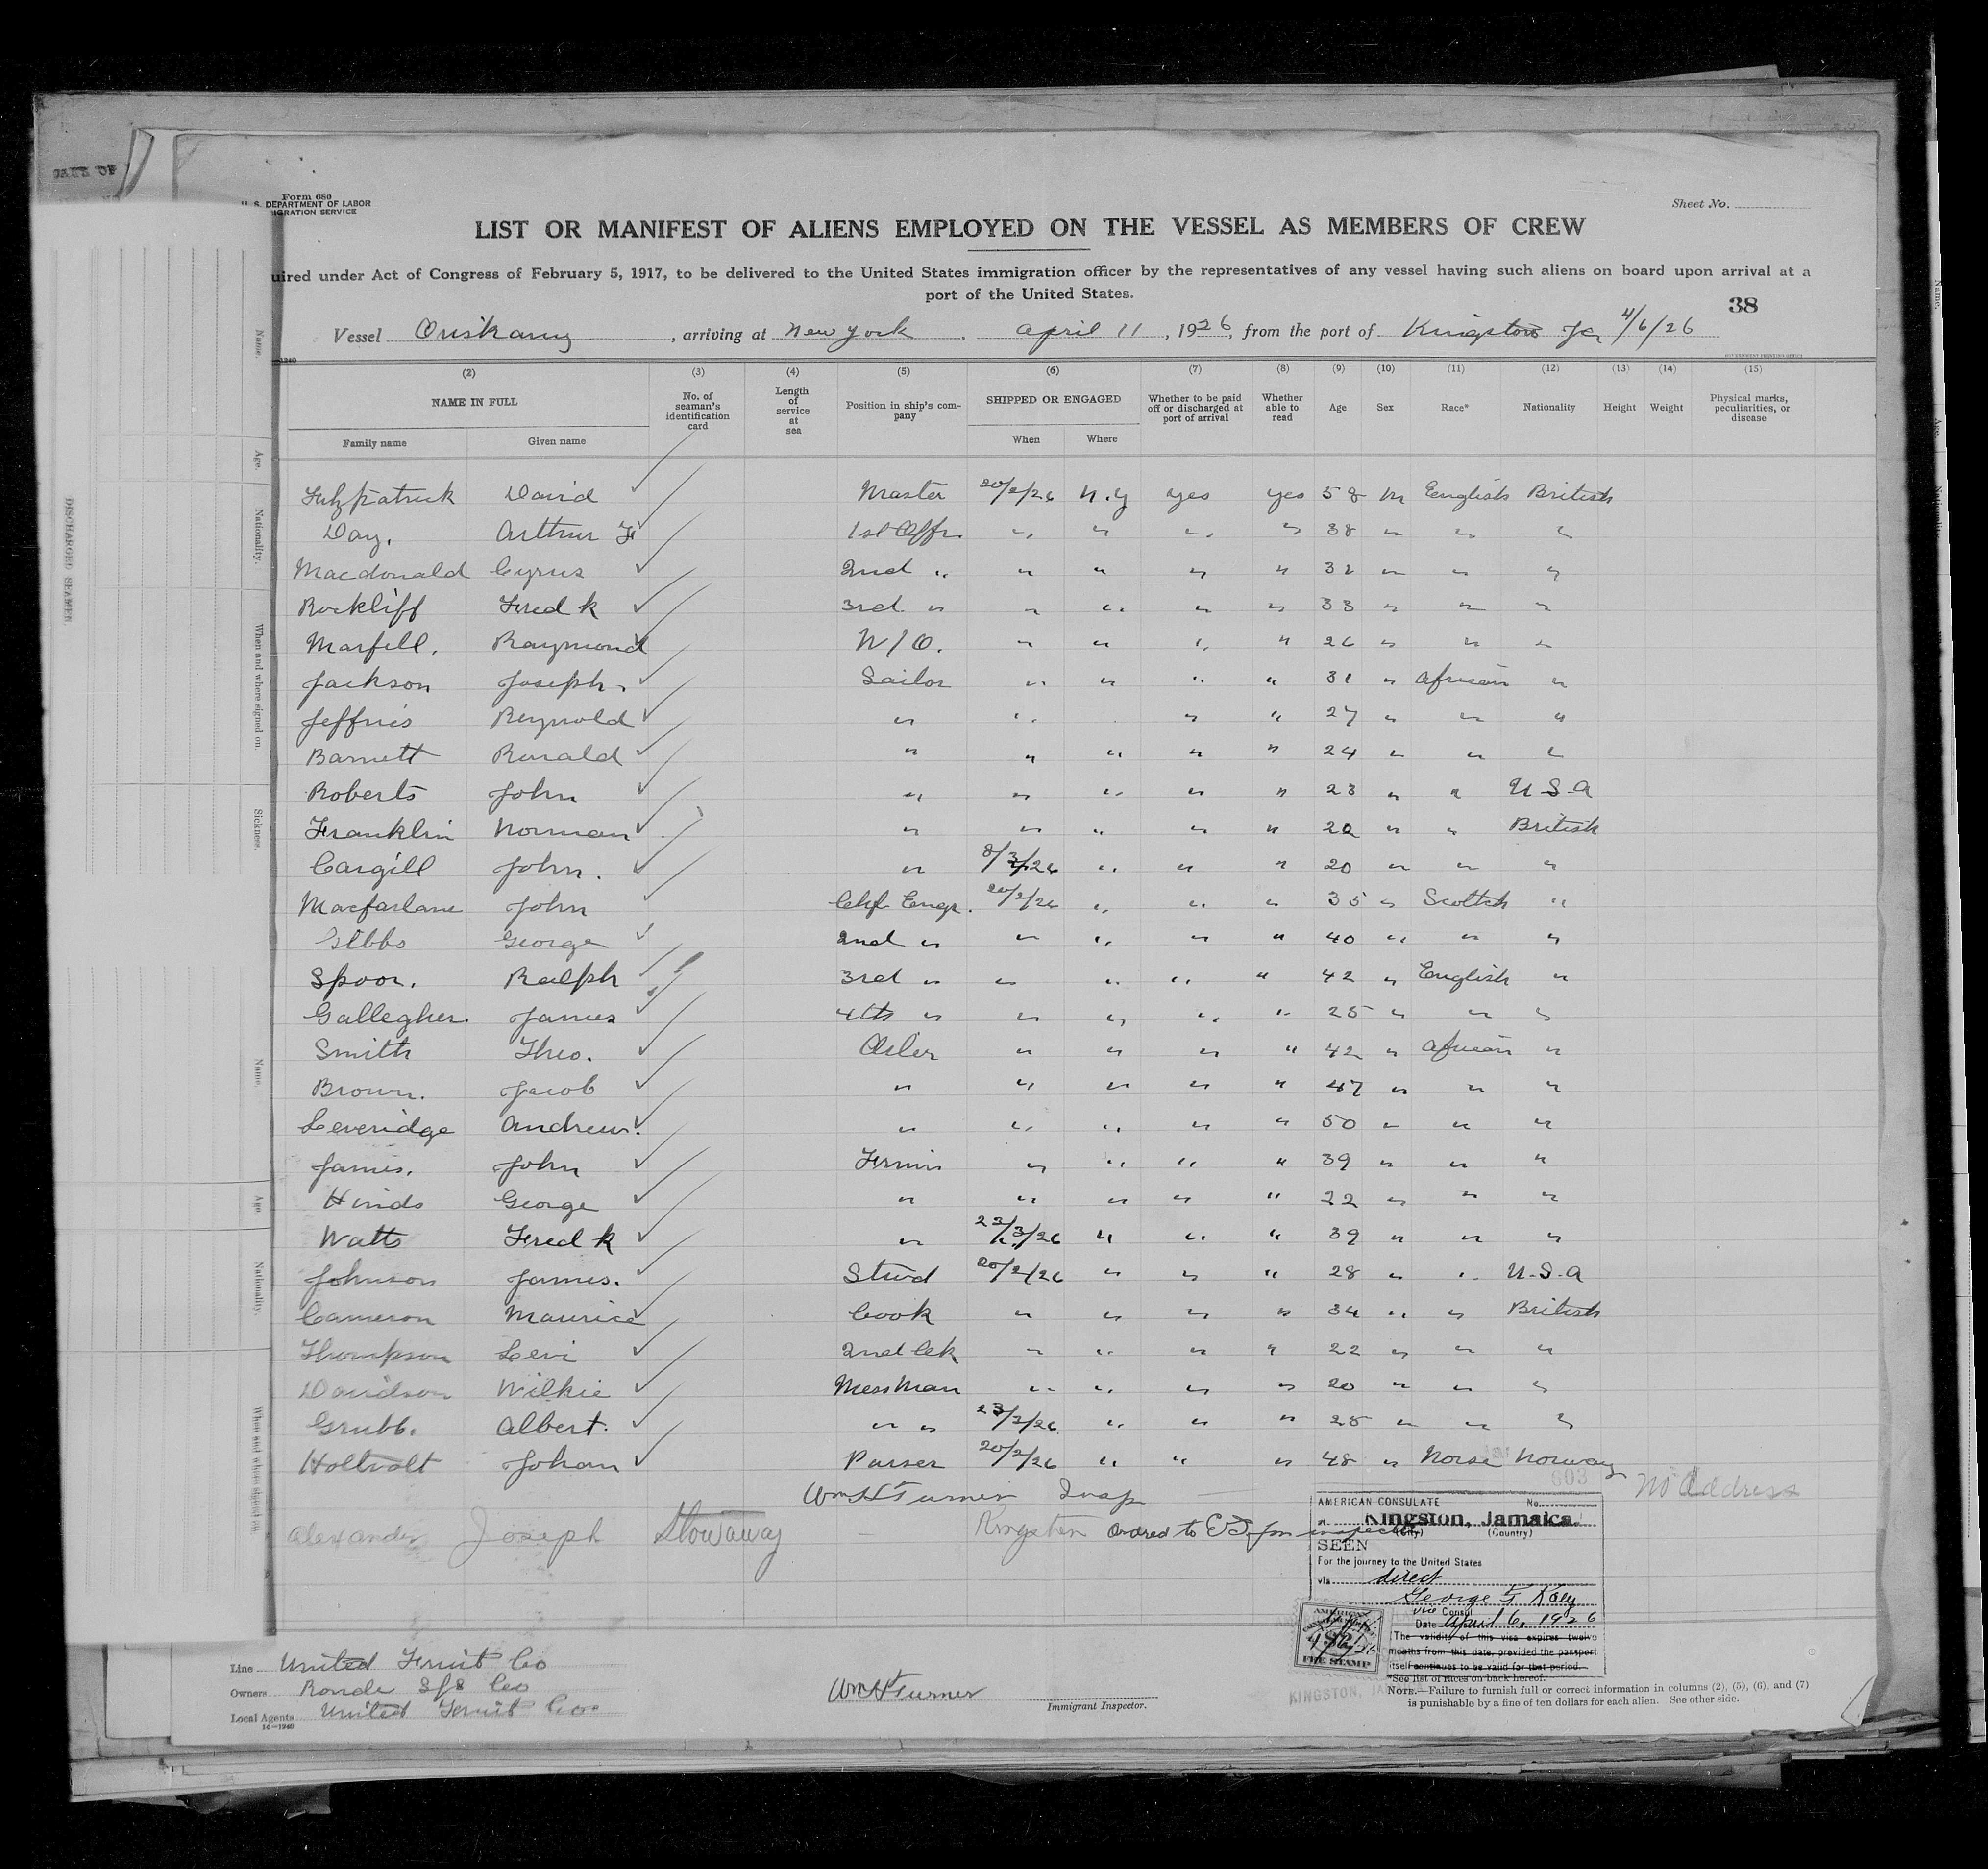 DATE OF
Form 680
U. S. DEPARTMENT OF LABOR
IGRATION SERVICE
Sheet No.
LIST OR MANIFEST OF ALIENS EMPLOYED ON THE VESSEL AS MEMBERS OF CREW
uired under Act of Congress of February 5, 1917, to be delivered to the United States immigration officer by the representatives of any vessel having such aliens on board upon arrival at a
port of the United States.
38
Vessel Oriskany, arriving at New York, April 11, 1926, from the port of Kingston Ja, 4/6/26
(2) (3) (4) (5) (6) (7) (8) (9) (10) (11) (12) (13) (14) (15)
NAME IN FULL No. of seaman's identification card Length of service at sea Position in ship's company SHIPPED OR ENGAGED Whether to be paid off or discharged at port of arrival Whether able to read Age Sex Race* Nationality Height Weight Physical marks, peculiarities, or disease
Family name Given name When Where
Fitzpatrick David Master 20/2/26 N.Y yes yes 58 m English British
Day, Arthur F 1st Offr. " " " " 38 " " "
Macdonald Cyrus 2nd " " " " " 32 " " "
Rockliff Fredk 3rd " " " " " 33 " " "
Marfell, Raymond W/O. " " " " 26 " " "
Jackson Joseph. Sailor " " " " 31 " African "
Jeffries Reynold " " " " 27 " " "
Barnett Ronald " " " " " 24 " " "
Roberts John " " " " " 23 " " U.S.A
Franklin Norman " " " " " 22 " " British
Cargill John. " 8/3/26 " " " 20 " " "
Macfarlane John Chf. Engr. 20/2/26 " " " 35 " Scottch "
Gibbs George 2nd " " " " " 40 " " "
Spoor. Ralph 3rd " " " " " 42 " English "
Gallegher. James 4th " " " " " 25 " " "
Smith Theo. Oiler " " " " 42 " African "
Brown. Jacob " " " " " 47 " " "
Leveridge Andrew. " " " " " 50 " " "
James. John Firmin " " " " 39 " " "
Hinds George " " " " " 22 " " "
Watts Fredk " 23/3/26 " " " 39 " " "
Johnson James. Stwd 20/2/26 " " " 28 " " U.S.A
Cameron Maurice Cook " " " " 34 " " British
Thompson Levi 2nd Ck " " " " 22 " " "
Davidson Wilkie Mess Man " " " " 20 " " "
Grubb. Albert. " " 23/2/26 " " " 25 " " "
Holtvolt Johan Purser 20/2/26 " " " 48 " Norse Norway
Wm H Turner Insp
No Address
Alexander Joseph Stowaway — Kingston ordred to E.I. for inspection
AMERICAN CONSULATE No.
at Kingston, Jamaica.
(City) (Country)
SEEN
For the journey to the United States
via direct
George F Kaey
Vice Consul
Date April 6, 1926
The validity of this visa expires twelve
months from this date, provided the passport
itself continues to be valid for that period.
AMERICAN
FEE STAMP
KINGSTON, JA
*See list of races on back hereof.
NOTE.—Failure to furnish full or correct information in columns (2), (5), (6), and (7)
is punishable by a fine of ten dollars for each alien. See other side.
Line United Fruit Co
Owners Ronde S/S Co
Local Agents United Fruit Co.
Wm H Turner
Immigrant Inspector.
DISCHARGED SEAMEN.
Name.
Age.
Nationality.
When and where signed on.
Sickness.
Name.
Age.
Nationality.
When and where signed on.